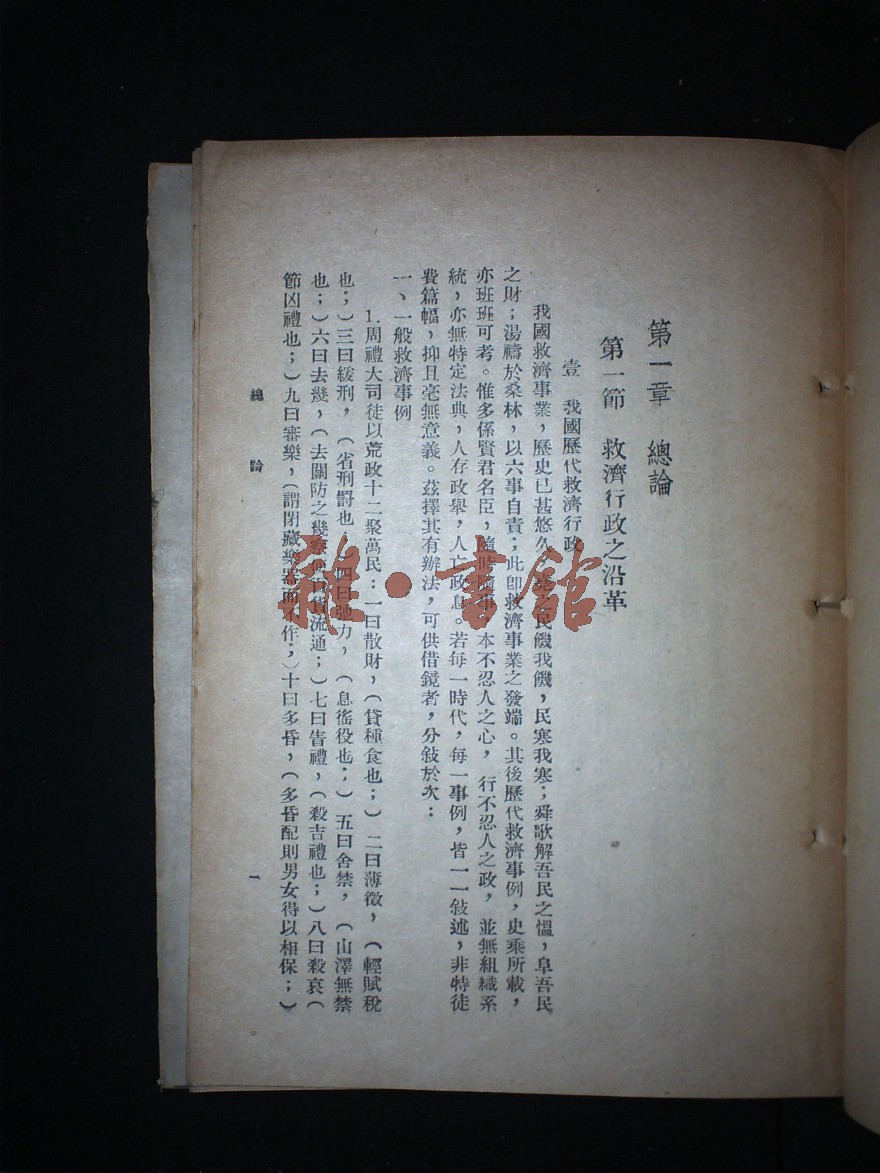 第一章 總論
第一節 救濟行政之沿革
壹 我國歷代救濟行政
我國救濟事業，歷史已甚悠久，民饑我饑，民寒我寒；舜歌解吾民之慍，阜吾民
之財；湯禱於桑林，以六事自責；此卽救濟事業之發端。其後歷代救濟事例，史乘所載，
亦班班可考。惟多係賢君名臣，隨時隨事，本不忍人之心，行不忍人之政，並無組織系
統，亦無特定法典，人存政舉，人亡政息。若每一時代，每一事例，皆一一敍述，非特徒
費篇幅，抑且毫無意義。茲擇其有辦法，可供借鏡者，分敍於次：
一、一般救濟事例
1.周禮大司徒以荒政十二聚萬民：一曰散財，（貸種食也；）二曰薄徵，（輕賦稅
也；）三曰緩刑，（省刑罸也；）四曰弛力，（息徭役也；）五曰舍禁，（山澤無禁
也；）六曰去幾，（去關防之幾察 貨流通；）七曰眚禮，（殺吉禮也；）八曰殺哀（
節凶禮也；）九曰審樂，（謂閉藏樂器而不作；）十曰多昏，（多昏配則男女得以相保；）
總論
一
雜·書館